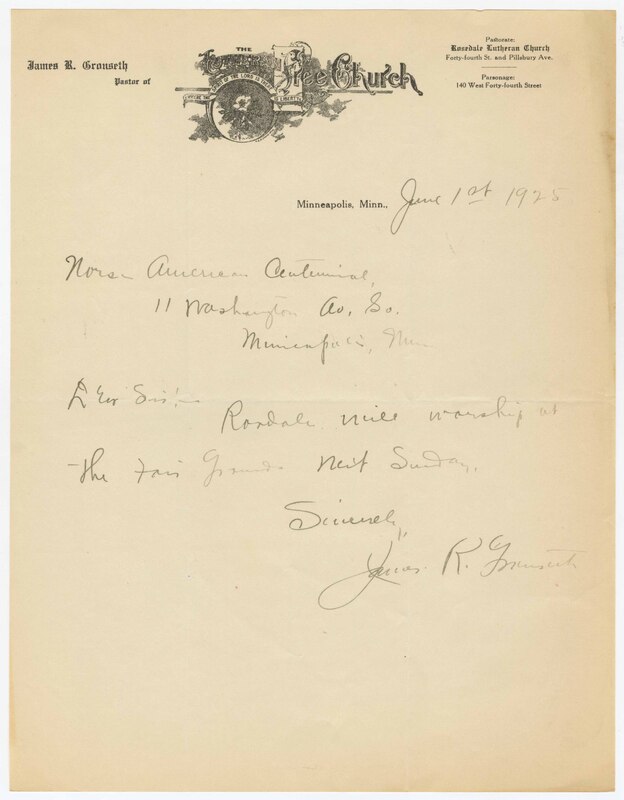 James R. Gronseth
Pastor of
THE
Lutheran Free Church
OF THE LORD
LIBERTY
Pastorate:
Rosedale Lutheran Church
Forty-fourth St. and Pillsbury Ave.
Parsonage:
140 West Forty-fourth Street
Minneapolis, Minn., June 1st 1925
Norse American Centennial,
11 Washington Av. So.
Minneapolis, Minn
Dear Sir:—
Rosedale will worship at
the Fair Grounds next Sunday.
Sincerely,
James R. Gronseth